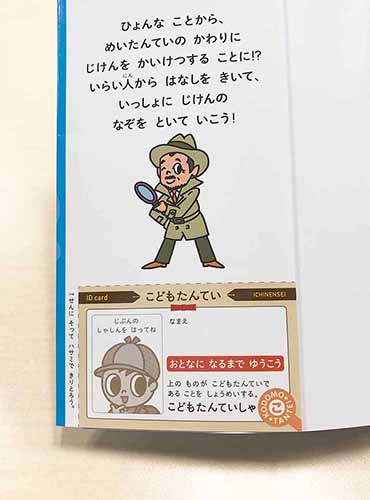 ひょんな ことから、
めいたんていの かわりに
じけんを かいけつする ことに!?
いらい人から はなしを きいて、
いっしょに じけんの
なぞを といて いこう!
にん
ID card
こどもたんてい
ICHINENSEI
じぶんの
しゃしんを はってね
なまえ
おとなに なるまで ゆうこう
上の ものが こどもたんていで
ある ことを しょうめいする。
こどもたんていしゃ
KODOMO
TANTEI
→せんに そって ハサミで きりとろう。